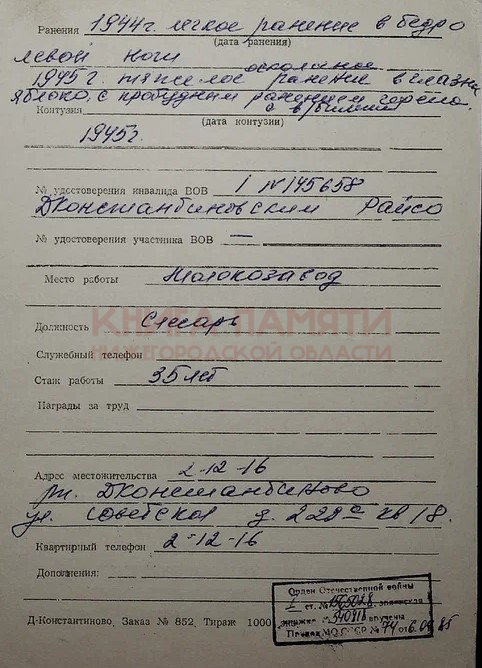 Ранения 1944г. легкое ранение в бедро
(дата ранения)
левой ноги осколочное
1945 г. тяжелое ранение в глазн
яблоко, с пробудным ранением
Контузия
(дата контузии)
1945г.
№ удостоверения инвалида ВОВ I №145658
ДКонстантиновским Райсо
№ удостоверения участника ВОВ —
Место работы Молокозавод
КНИГА ПАМЯТИ
Должность Слесарь
НИЖЕГОРОДСКОЙ ОБЛАСТИ
Служебный телефон
Стаж работы 35 лет
Награды за труд
Адрес местожительства 2-12-16
рп. ДКонстантиново
ул. Советская д. 229а кв 18.
Квартирный телефон 2-12-16
Дополнения:
Орден Отечественной войны
I ст. № 1565028 орденская
книжка № 540918 вручены
Приказ МО СССР № 74 от 6.04.85
Д-Константиново, Заказ № 852, Тираж 1000